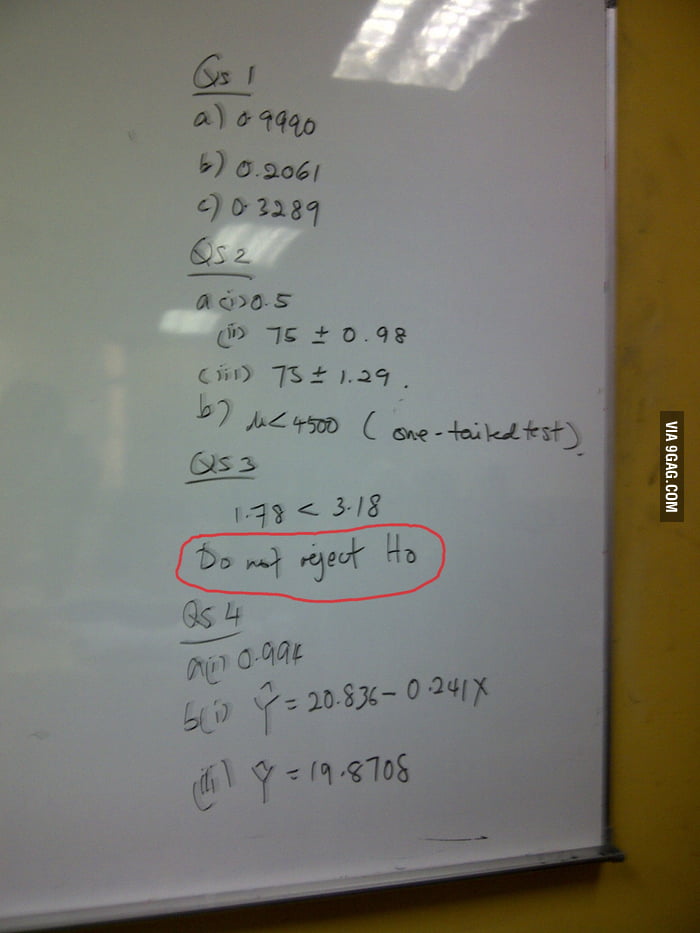 Qs 1
a) 0.9990
b) 0.2061
c) 0.3289
QS 2
a (i) 0.5
(ii) 75 ± 0.98
(iii) 75 ± 1.29.
b) μ < 4500 (one-tailed test).
QS 3
1.78 < 3.18
Do not reject Ho
QS 4
a(i) 0.994
b(i) Ŷ = 20.836 - 0.241X
(ii) Ŷ = 19.8708
VIA 9GAG.COM